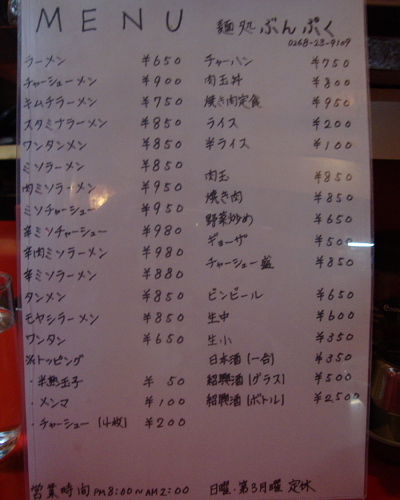 MENU
麺処 ぶんぷく
0268-28-9109
ラーメン ¥650
チャーシューメン ¥900
キムチラーメン ¥750
スタミナラーメン ¥850
ワンタンメン ¥850
ミソラーメン ¥850
肉ミソラーメン ¥950
ミソチャーシュー ¥950
辛ミソチャーシュー ¥980
辛肉ミソラーメン ¥980
辛ミソラーメン ¥880
タンメン ¥850
モヤシラーメン ¥850
ワンタン ¥650
※トッピング
・半熟玉子 ¥50
・メンマ ¥100
・チャーシュー [4枚] ¥200
チャーハン ¥750
肉玉丼 ¥800
焼き肉定食 ¥950
ライス ¥200
半ライス ¥100
肉玉 ¥850
焼き肉 ¥850
野菜炒め ¥650
ギョーザ ¥500
チャーシュー盛 ¥850
ビンビール ¥650
生中 ¥600
生小 ¥350
日本酒 [一合] ¥350
紹興酒 [グラス] ¥500
紹興酒 [ボトル] ¥2,500
営業時間 PM8:00〜AM2:00 日曜・第3月曜 定休